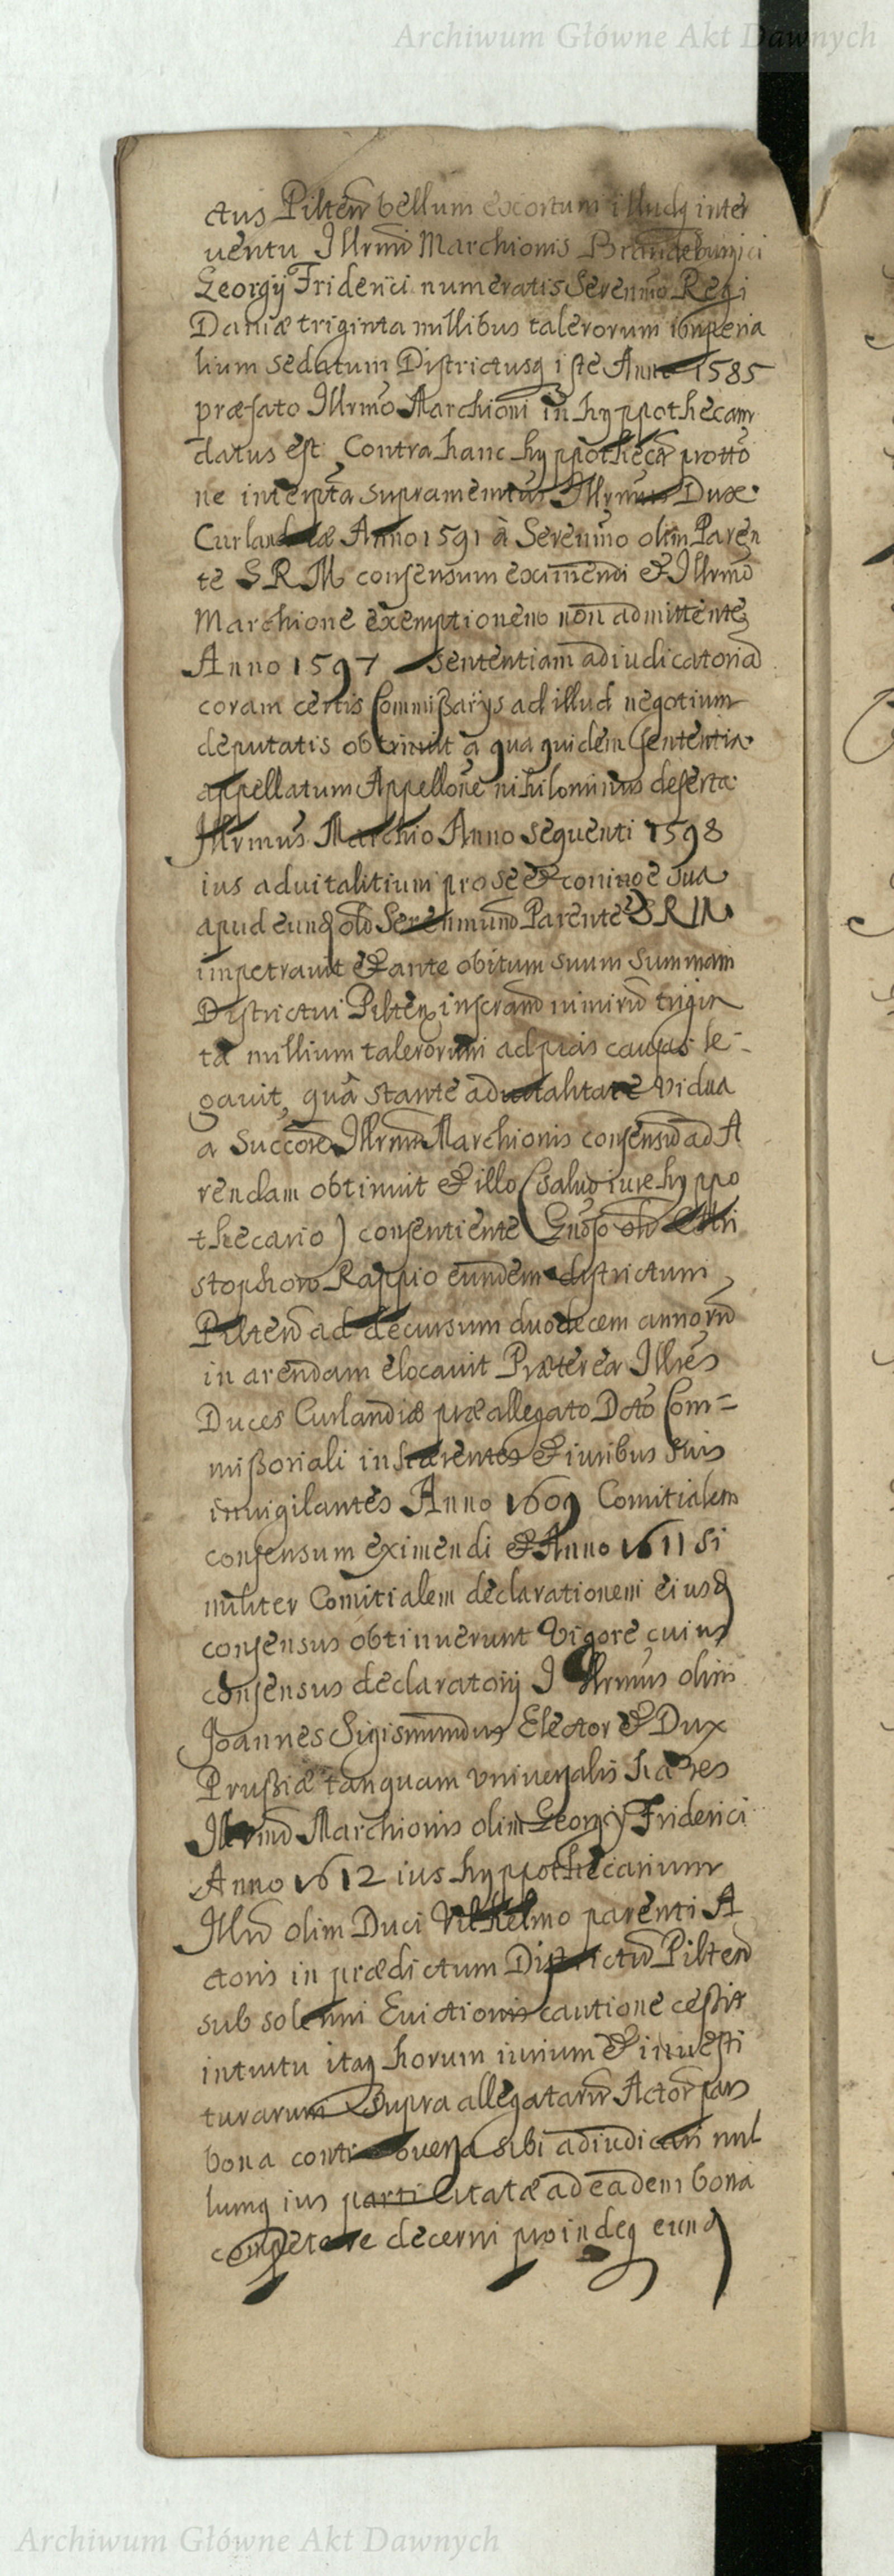 Archiwum Główne Akt Dawnych
ctus Pilten bellum exortum illudq inter
uentu Illrmi Marchionis Brandeburgici
Georgij Friderici numeratis Serenmo Regi
Daniæ triginta millibus talerorum imperia
lium sedatum Districtusq iste Anno 1585
præfato Illrmo Marchioni in hyppothecam
datus est Contra hanc hyppothecã protto
ne intenpta supramemtus Illrmus Dux
Curlandiæ Anno 1591 à Serenmo olim Paren
te S R M consensum eximendi & Illrmo
Marchione exemptionem non admittente
Anno 1597 Sententiam adiudicatoria
coram certis Commißarijs ad illud negotium
deputatis obtinuit a qua quidem Sententia
appellatum Appellone nihilominus deserta
Illrmus Marchio Anno sequenti 1598
ius aduitalitium pro se & coniuge sua
apud eund olim Serenmum Parente S R M
impetrauit & ante obitum suum summam
Districtui Pilten inscram nimirũ trigin
ta millium talerorum ad pias causas le-
gauit, quã stante aduitalitate vidua
a Succore Illrmi Marchionis consensũ ad A
rendam obtinuit & illo (saluo iure hyppo
thecario) consentiente Gnoso olim Chri
stophoro Rappio eundem districtum
Pilten ad decursum duodecem annorũ
in arendam elocauit Præterea Illres
Duces Curlandiæ præallegato Dcto Com-
mißoriali inhærentes & iuribus suis
inuigilantes Anno 1609 Comitialem
consensum eximendi & Anno 1611 si
militer Comitialem declarationem eiusd
consensus obtinuerunt Vigore cuius
consensus declaratorij Illrmus olim
Joannes Sigismundus Elector & Dux
Prußiæ tanquam vniuersalis hæres
Illrmi Marchionis olim Georgij Friderici
Anno 1612 ius hyppothecarium
Illri olim Duci Vilhelmo parenti A
ctoris in prædictum Districtũ Pilten
sub solenni Euictionis cautione cessit
intuitu itaq horum iurium & inuesti
turarum supra allegatarũ Actor pars
bona controuersa sibi adiudicari nul
lumq ius parti Citatæ ad eadem bona
competere decerni proindeq eund
Archiwum Główne Akt Dawnych